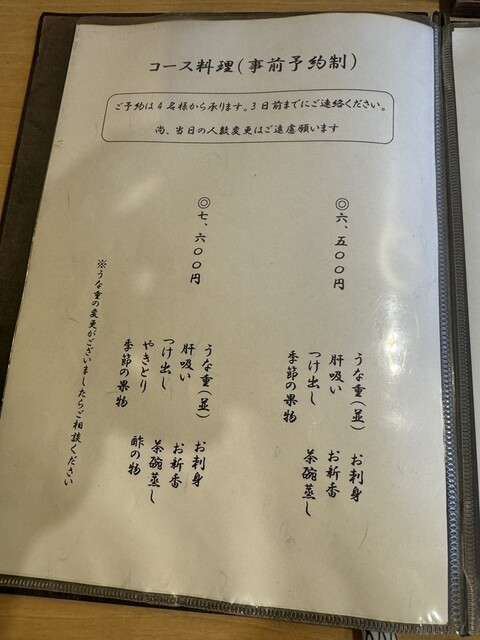 コース料理(事前予約制)
ご予約は4名様から承ります。3日前までにご連絡ください。
尚、当日の人数変更はご遠慮願います
◎六、五〇〇円
うな重(並) お刺身
肝吸い お新香
つけ出し 茶碗蒸し
季節の果物
◎七、六〇〇円
うな重(並) お刺身
肝吸い お新香
つけ出し 茶碗蒸し
やきとり 酢の物
季節の果物
※うな重の変更がございましたらご相談ください